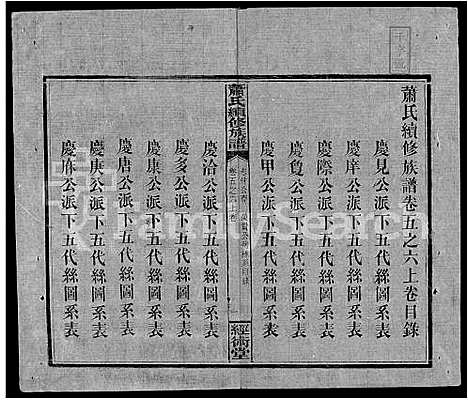 蕭氏續修族譜卷五之六上卷目錄
慶見公派下五代絲圖系表
慶庠公派下五代絲圖系表
慶際公派下五代絲圖系表
慶公派下五代絲圖系表
慶甲公派下五代絲圖系表
蕭氏續修族譜
經術堂
慶洽公派下五代絲圖系表
慶多公派下五代絲圖系表
慶康公派下五代絲圖系表
慶唐公派下五代絲圖系表
慶庚公派下五代絲圖系表
慶公派下五代絲圖系表
FamilySearch